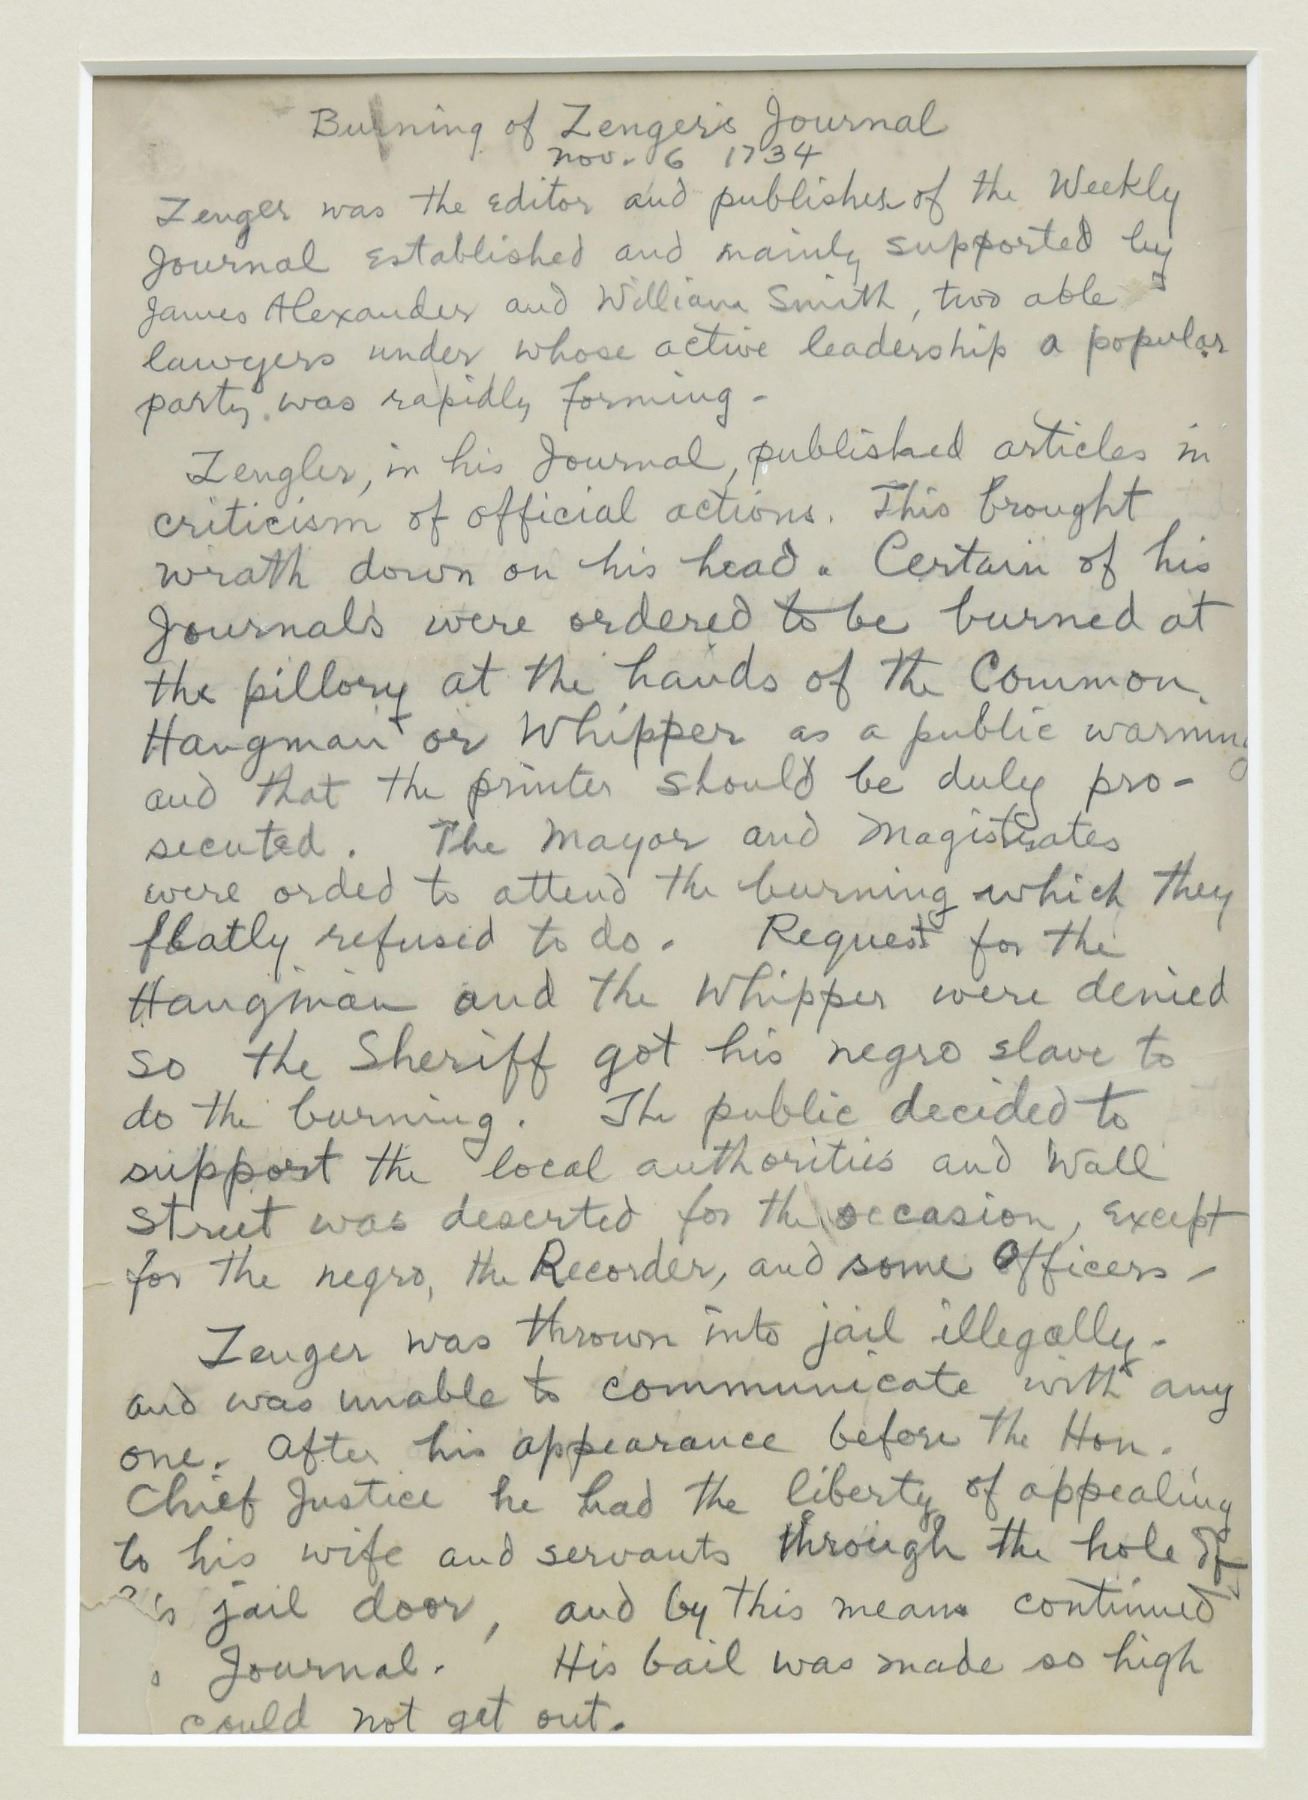 Burning of Zenger's Journal
Nov. 6 1734
Zenger was the Editor and publisher of the Weekly
Journal Established and mainly supported by
James Alexander and William Smith, two able
lawyers under whose active leadership a popular
party was rapidly forming -
Zengler, in his Journal, published articles in
criticism of official actions. This brought
wrath down on his head. Certain of his
Journals were ordered to be burned at
the pillory at the hands of the Common
Hangman or Whipper as a public warning
and that the printer should be duly pro-
secuted. The Mayor and Magistrates
were orded to attend the burning which they
flatly refused to do. Request for the
Hangman and the Whipper were denied
so the Sheriff got his negro slave to
do the burning. The public decided to
support the local authorities and Wall
Street was deserted for the occasion, Except
for the negro, the Recorder, and some Officers -
Zenger was thrown into jail illegally.
and was unable to communicate with any
one. After his appearance before the Hon.
Chief Justice he had the liberty of appealing
to his wife and servants through the hole of
jail door, and by this means continued
Journal. His bail was made so high
could not get out.